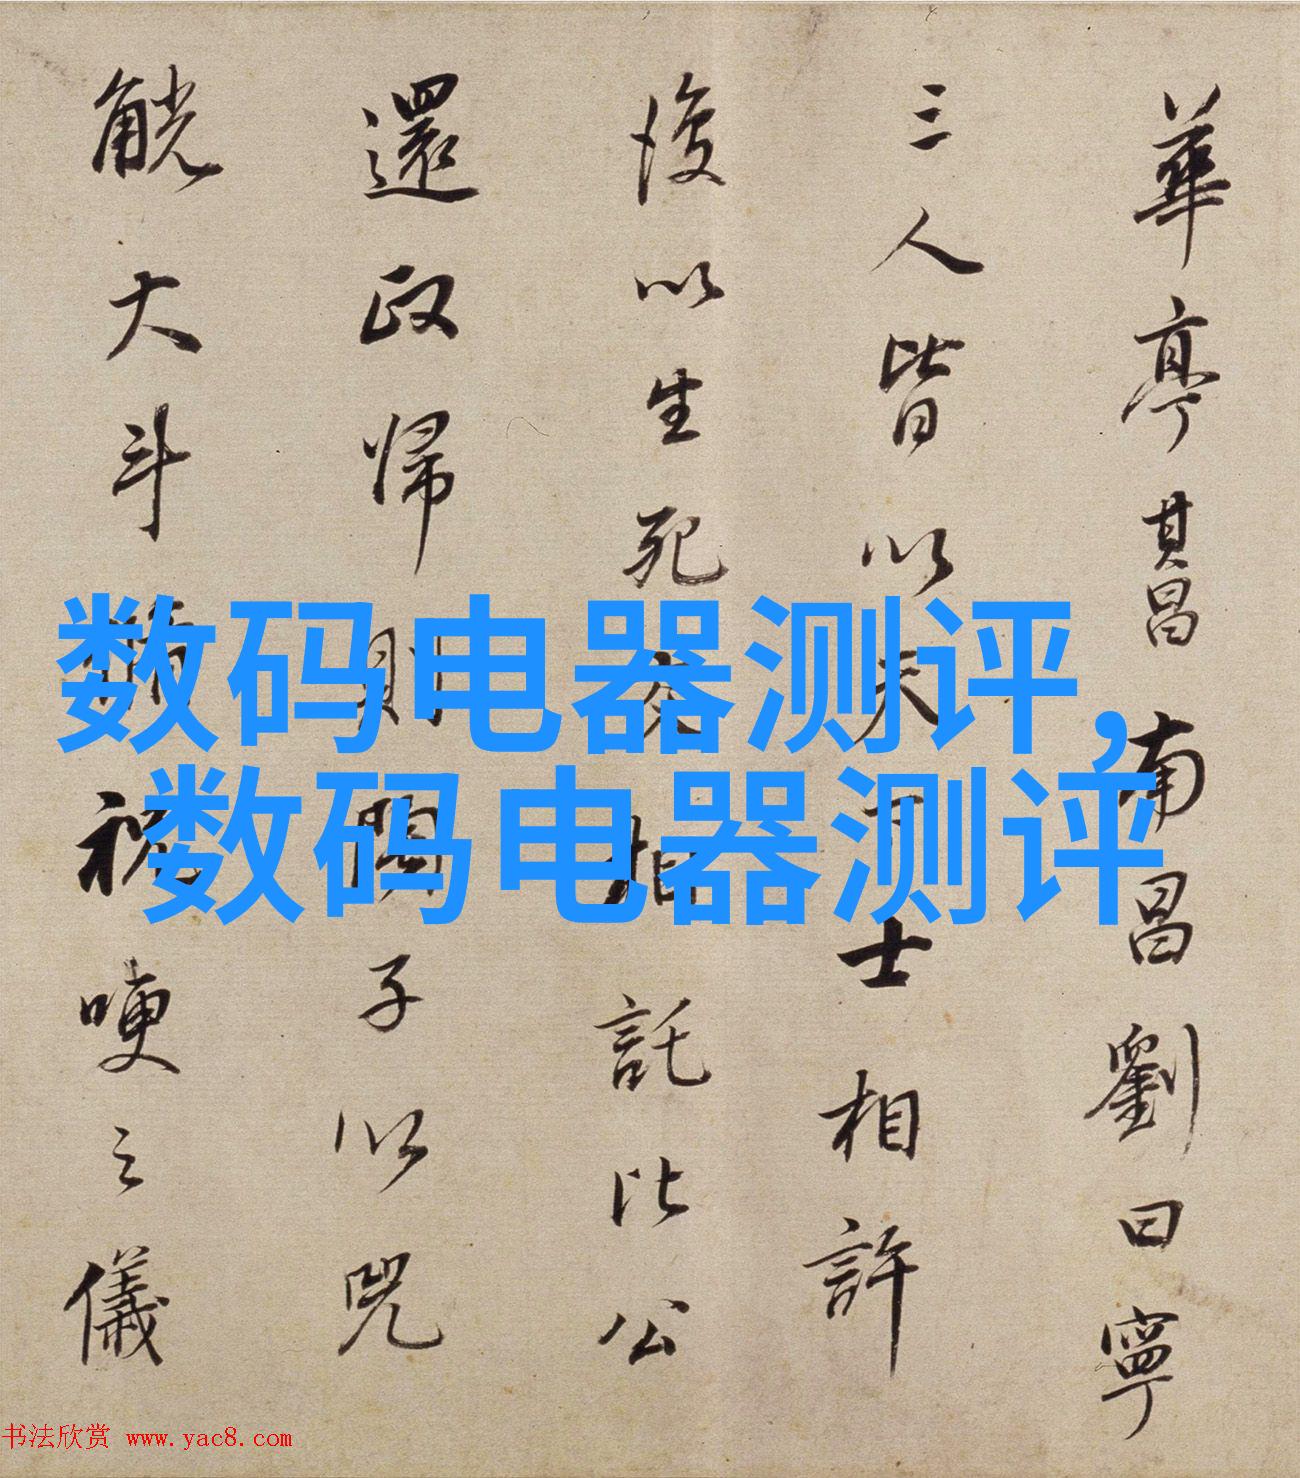 華亭其昌南昌劉曰寧
三人皆以天下士相許
後以生死交相託比公
還政帰則子以兕
觥大斗祝哽之儀
数码电器测评,
数码电器测评
书法欣赏 www.yac8.com